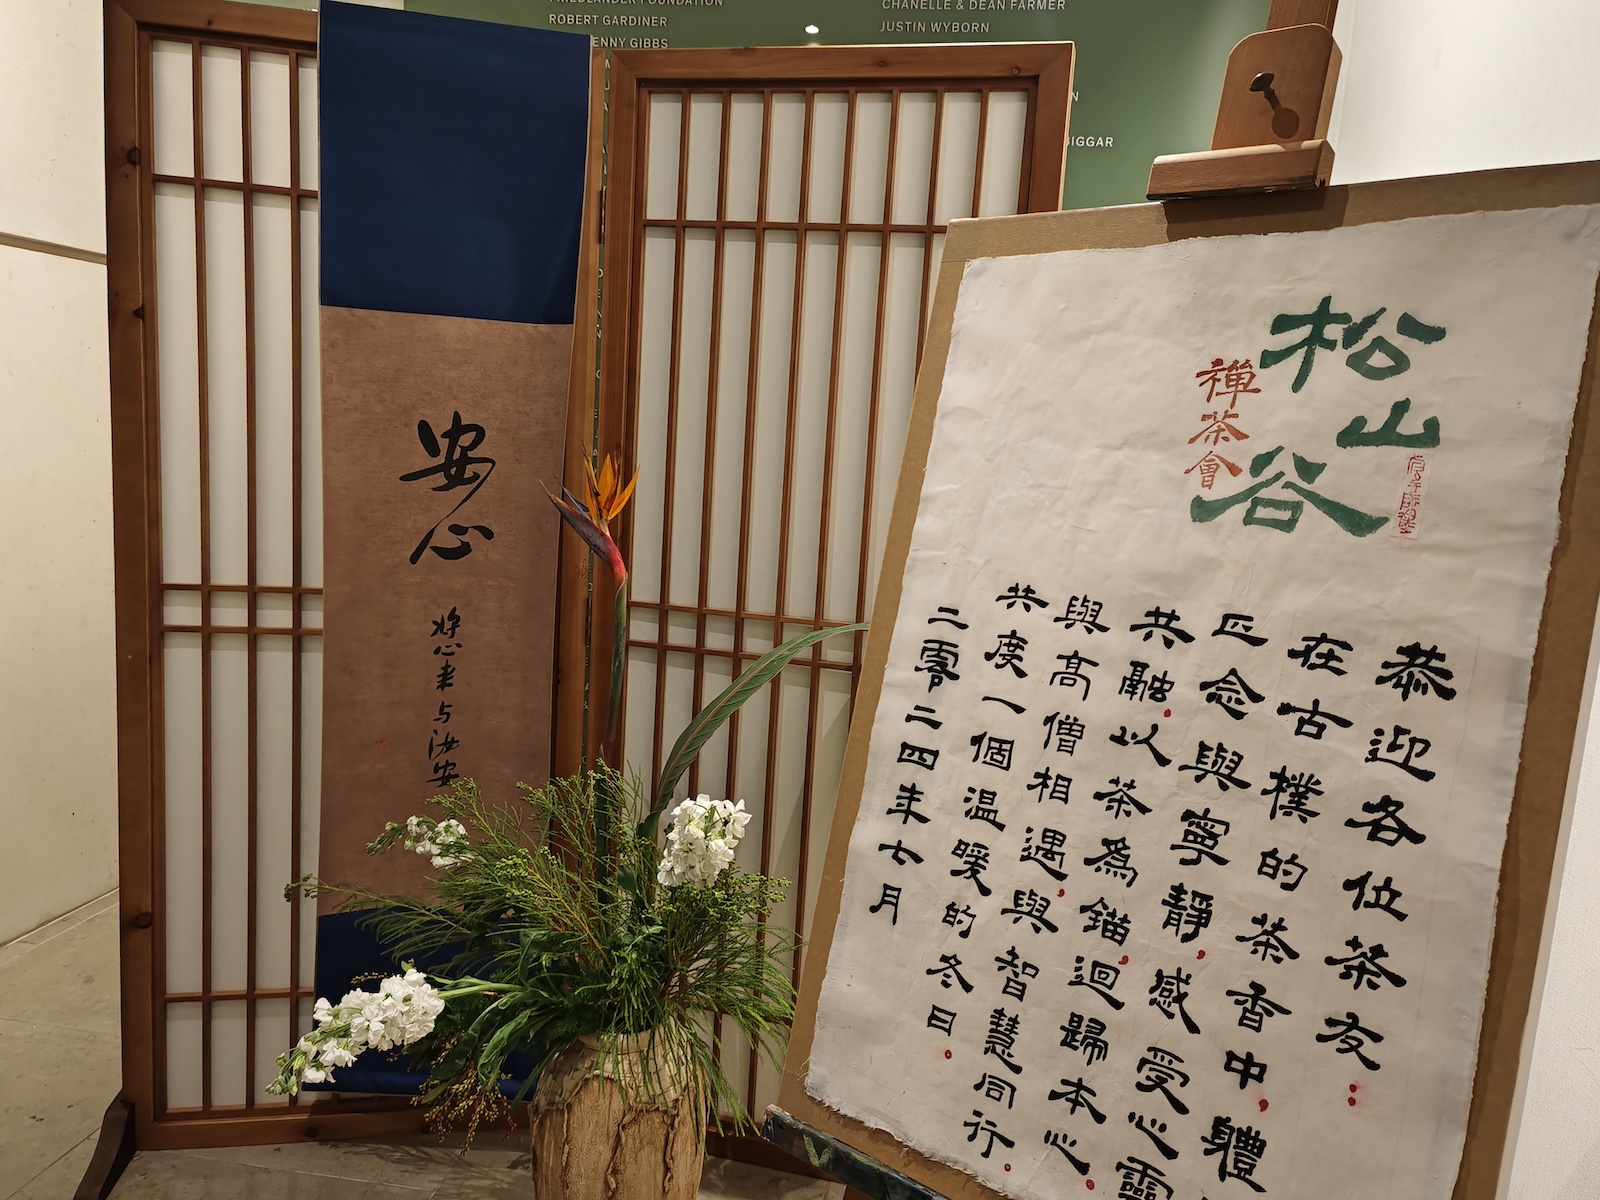 FRIEDLANDER FOUNDATION
ROBERT GARDINER
ENNY GIBBS
CHANELLE & DEAN FARMER
JUSTIN WYBORN
BIGGAR
安心
將心来与汝安
松山谷
禪茶會
恭迎各位茶友：
在古樸的茶香中，體
正念與寧靜，感受心靈
共融。以茶為錨，迴歸本心。
與高僧相遇，與智慧同行。
共度一個温暖的冬日。
二零二四年七月